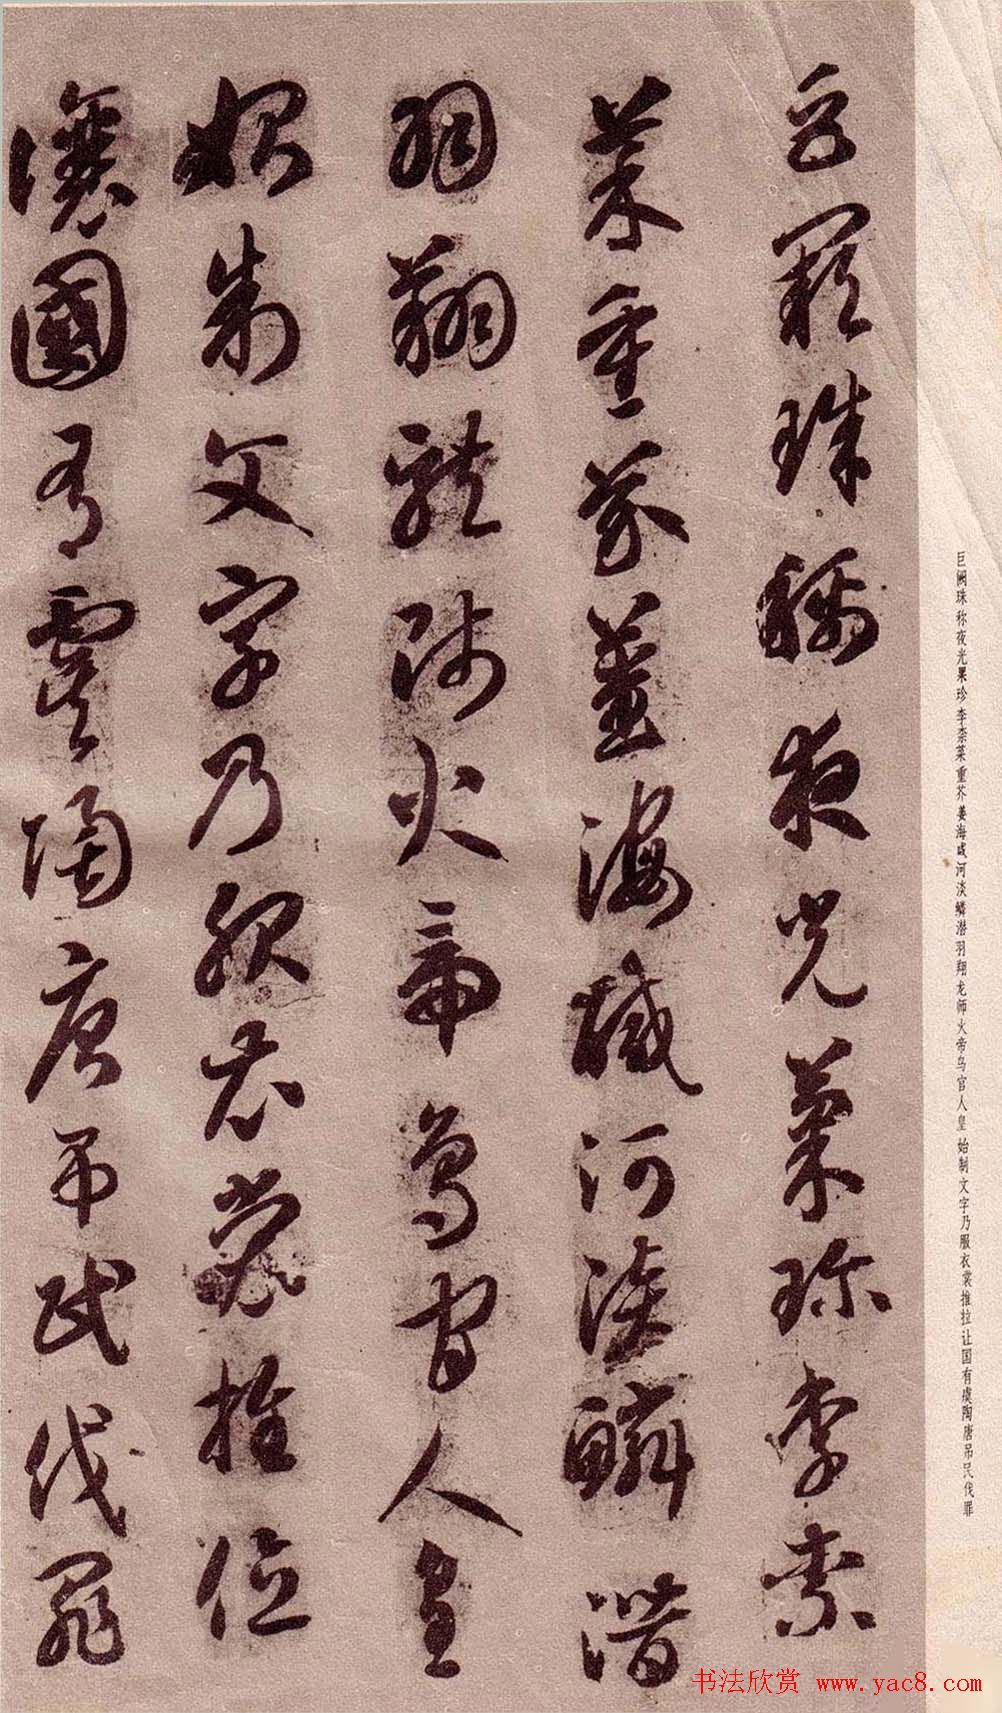 巨阙珠称夜光果珍李柰菜重芥姜海咸河淡鳞潜羽翔龙师火帝鸟官人皇始制文字乃服衣裳推拉让国有虞陶唐吊民伐罪
巨闕珠稱夜光菓珍李柰
菜重芥薑海醎河淡鱗潛
羽翔龍師火帝鳥官人皇
始制文字乃服衣裳推位
讓國有虞陶唐吊民伐罪
书法欣赏 www.yac8.com